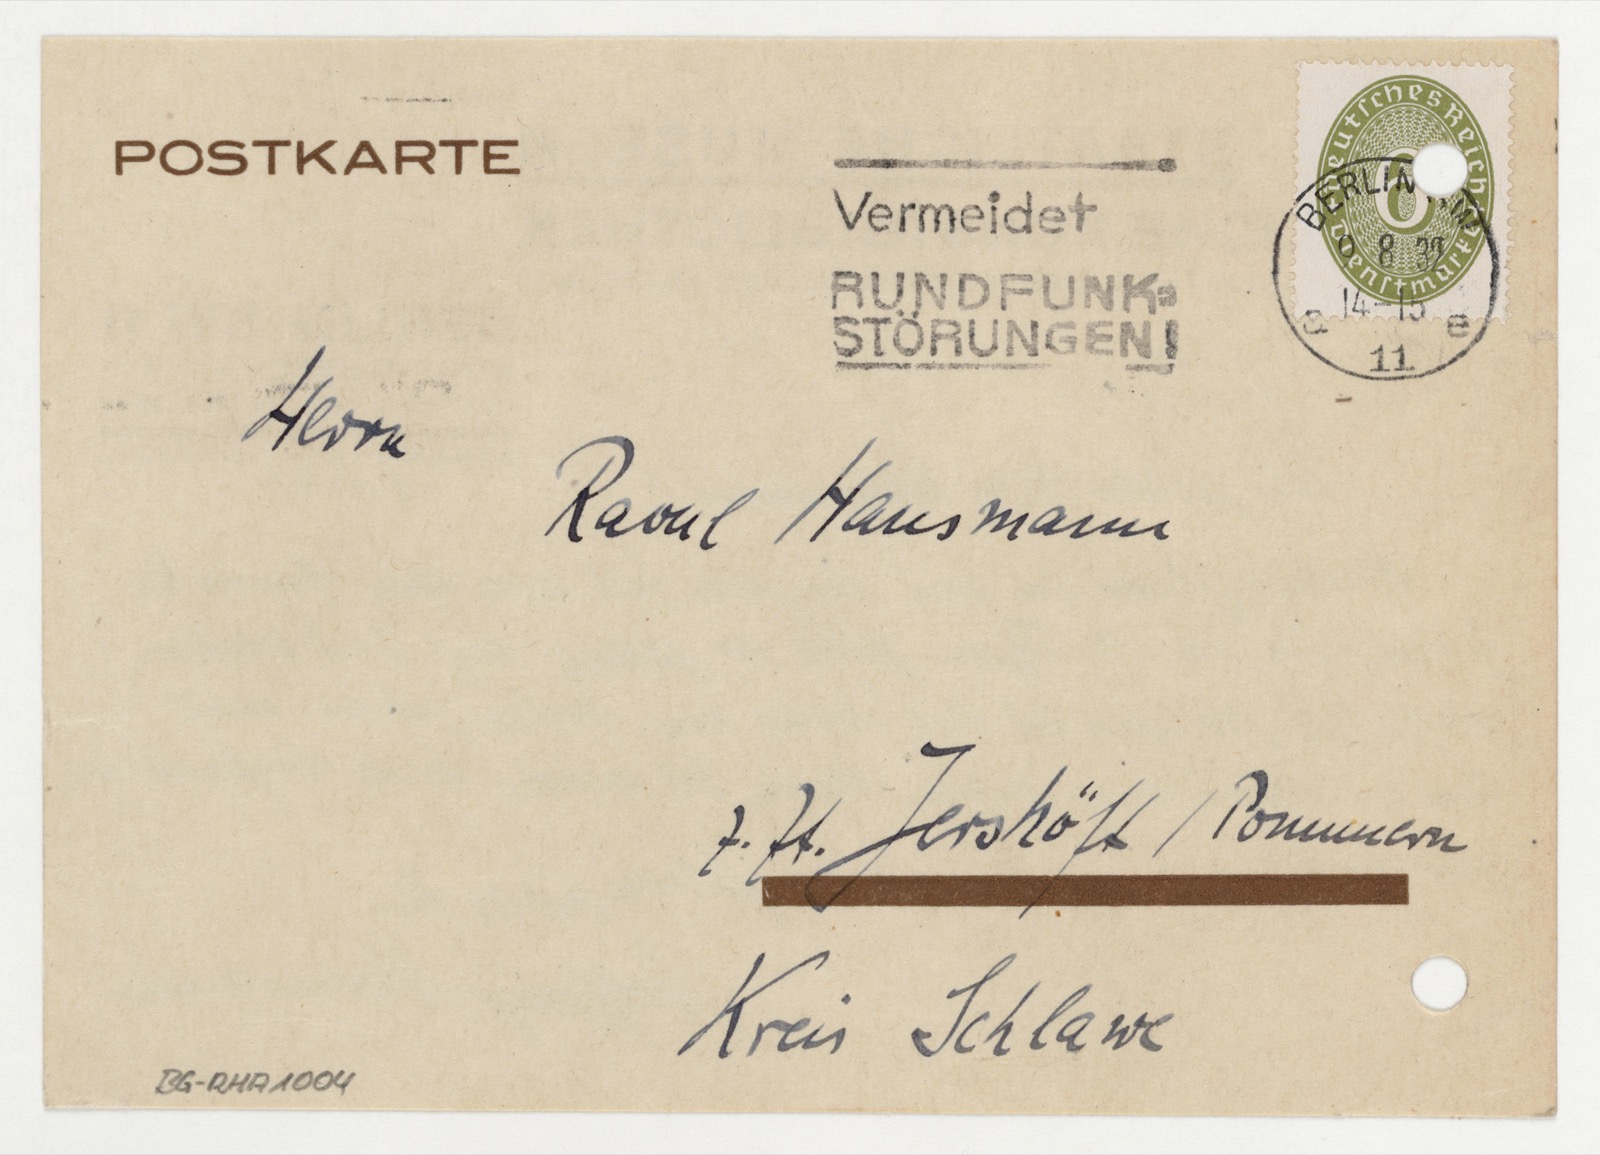 POSTKARTE
Vermeidet
RUNDFUNK-
STÖRUNGEN!
Deutsches Reich
6
Dienstmarke
BERLIN
8 32
14-15
e
11
Herrn
Raoul Hausmann
z. Zt. Jershöft / Pommern
Kreis Schlawe
BG-RHA1004